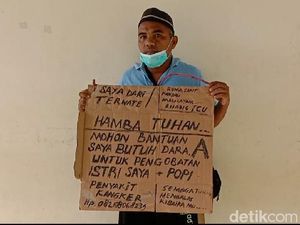 SAYA DARI
TERNATE
RUMA SAKIT
HAMBA TUHAN...
MOHON BANTUAN
SAYA BUTUH DARA A
UNTUK PENGOBATAN
ISTRI SAYA + POPI
PENYAKIT
KANGKER
SEMOGA TUHAN
MEMBALAS
detikcom